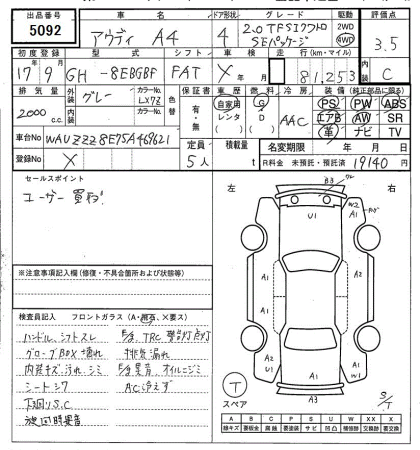 出品番号 車名 ドア形状 グレード 駆動 評価点
5092 アウディ A4 4 2.0 TFSIクワトロ SEパッケージ 2WD 4WD 3.5
初度登録 型式 シフト 車検 走行(km・マイル) 内装
17年9月 GH-8EBGBF FAT X年 月 81,253 C
排気量 外装 グレー カラーNo. LX7Z 色替 保証書 車歴 燃料 冷房 装備(純正部品に限る)
2000 c.c. 内装 カラーNo. 有・無 自家用 レンタ ( ) G D ( ) AAC PS PW ABS
エアB AW SR
革 ナビ TV
車台No WAUZZZ8E75A469621
定員 積載量 名変期限 年 月 日
登録No X 5人 t R料金 未預託・預託済 19140 円
セールスポイント
ユーザー買取!
左 右
U1
A1
A1
A2
A1
A1
A2
U1
A1
W1
A3
スペア
※注意事項記入欄(修復・不具合箇所および状態等)
検査員記入 フロントガラス(A・飛石、×要ス)
ハンドル、シフトスレ E/g、TRC警告灯点灯
グローブBOX壊れ 排気漏れ
内装キズ、汚れ、シミ E/g異音、オイルニジミ
シートシワ AC冷えず
下回りS.C
旋回時異音
A B C P S U W X XX
線キズ 要板金 腐蝕 要塗装 サビ 凹凸 補修跡 交換跡 要交換